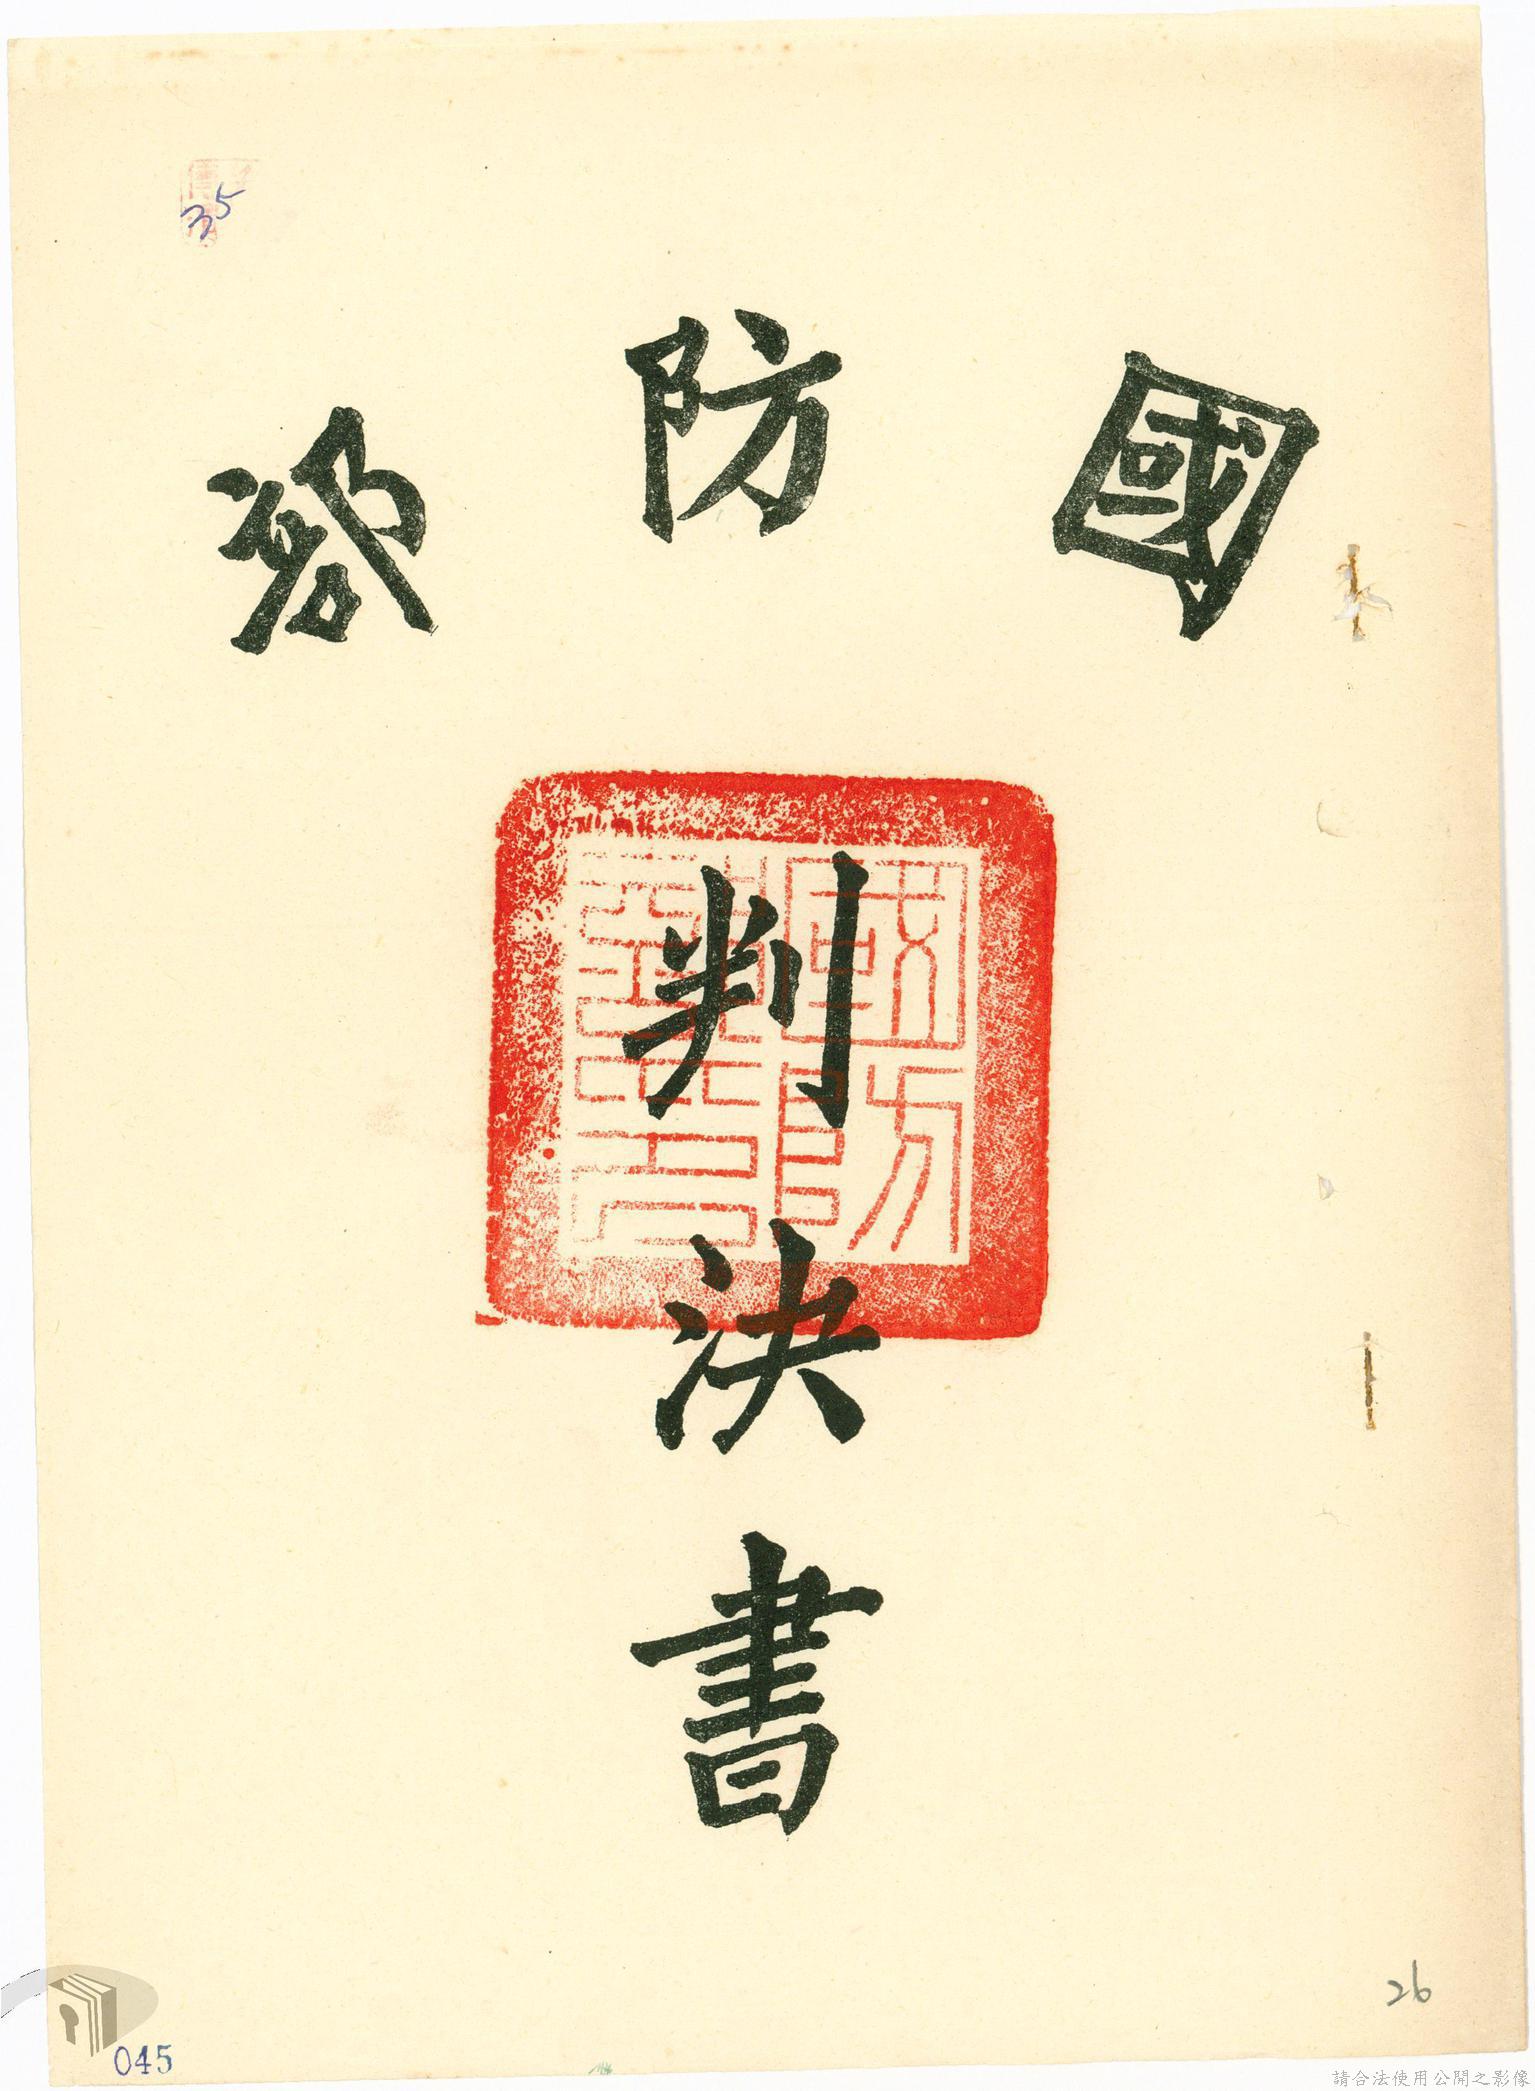 35
國防部
判決書
26
045
請合法使用公開之影像